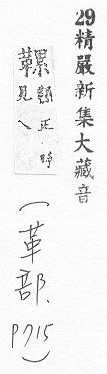 29精嚴新集大藏音
正時
見入
(革部.
P715)